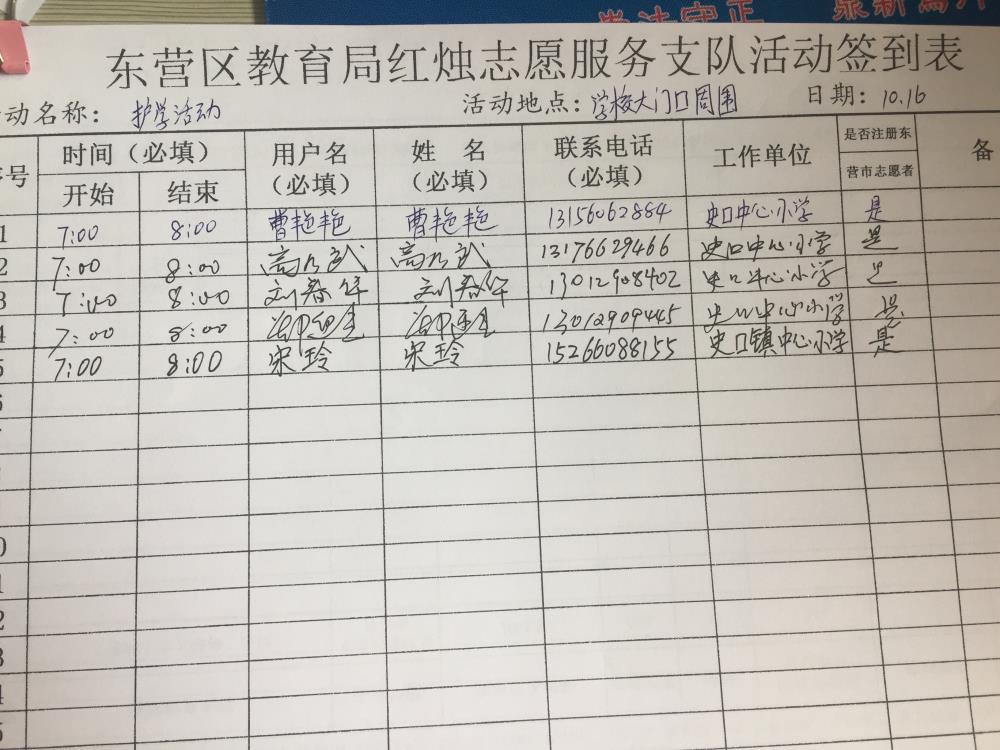 东营区教育局红烛志愿服务支队活动签到表
动名称： 护学活动 活动地点：学校大门口周围 日期：10.16
序号 时间（必填） 用户名（必填） 姓 名（必填） 联系电话（必填） 工作单位 是否注册东营市志愿者 备
开始 结束
1 7:00 8:00 曹艳艳 曹艳艳 13156062884 史口中心小学 是
2 7:00 8:00 高 武 高 武 13176629466 史口中心小学 是
3 7:00 8:00 刘春华 刘春华 13012908402 史口中心小学 是
4 7:00 8:00 13012909445 史口中心小学 是
5 7:00 8:00 宋玲 宋玲 15266088155 史口镇中心小学 是
6
0
1
2
3
4
5